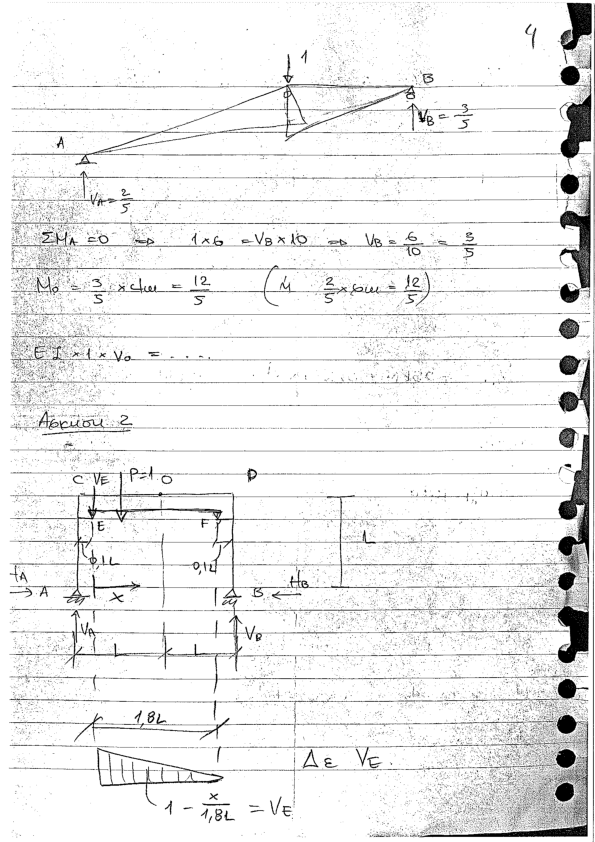 4
1
B
V_B = 3/5
A
V_A = 2/5
ΣM_A = 0 ⇒ 1×6 = V_B×10 ⇒ V_B = 6/10 = 3/5
M_0 = 3/5 × 4m = 12/5 (ή 2/5 × 6m = 12/5)
EI × 1 × V_0 = ....
Άσκηση 2
C V_E P=1 O D
E F
0,1L 0,1L L
H_A A x B H_B
V_A V_B
L L
1,8L
Δε V_E.
1 - x/1,8L = V_E